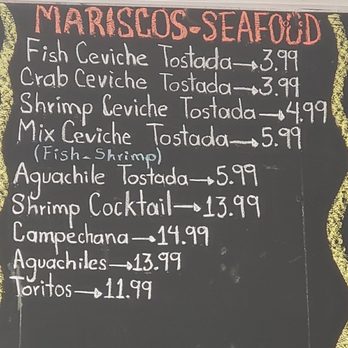 MARISCOS-SEAFOOD
Fish Ceviche Tostada→3.99
Crab Ceviche Tostada→3.99
Shrimp Ceviche Tostada→4.99
Mix Ceviche Tostada→5.99
(Fish-Shrimp)
Aguachile Tostada→5.99
Shrimp Cocktail→13.99
Campechana→14.99
Aguachiles→13.99
Toritos→11.99